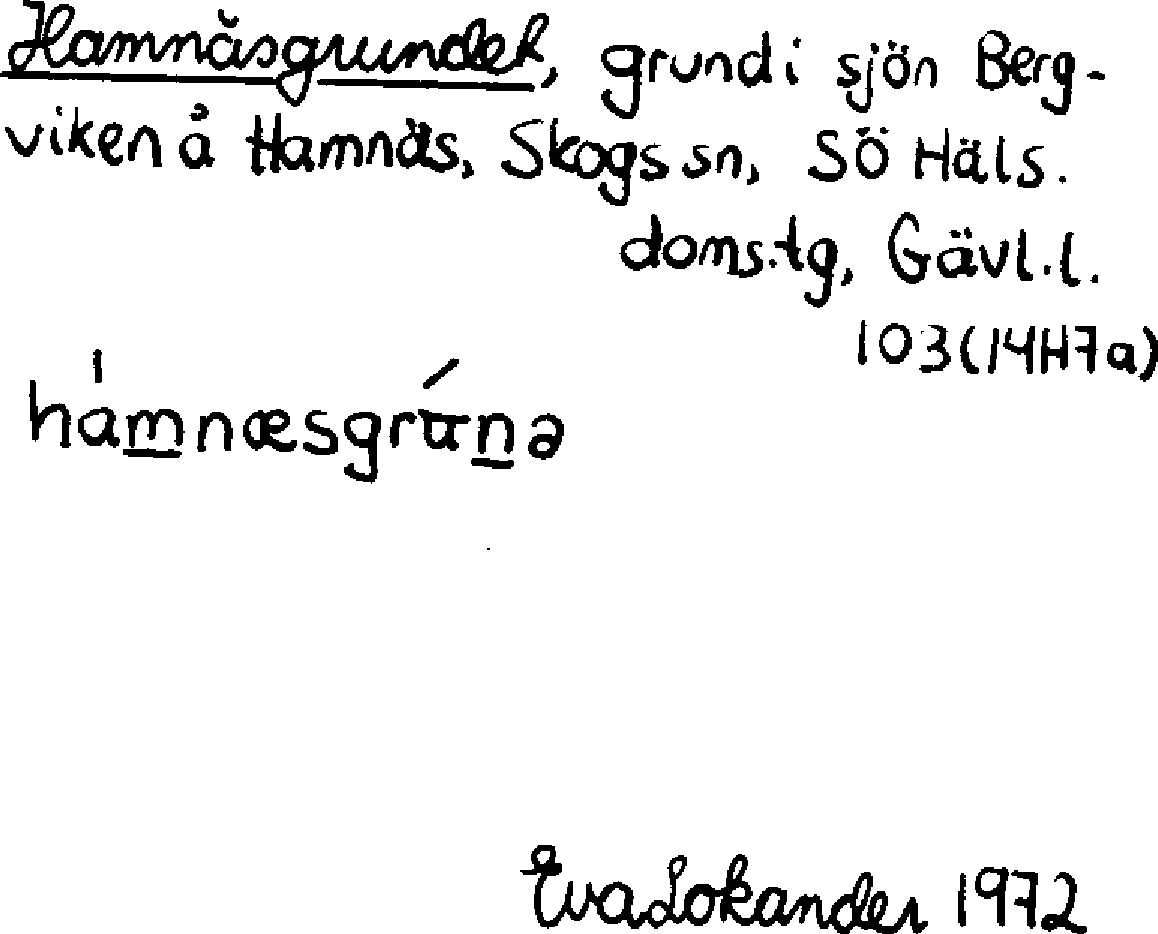 Hamnäsgrundet, grund i sjön Berg-
viken å Hamnäs, Skogs sn, SÖ Häls.
doms.tg, Gävl.l.
103 (14H7a)
hámnæsgrúnə
Eva Lokander 1972